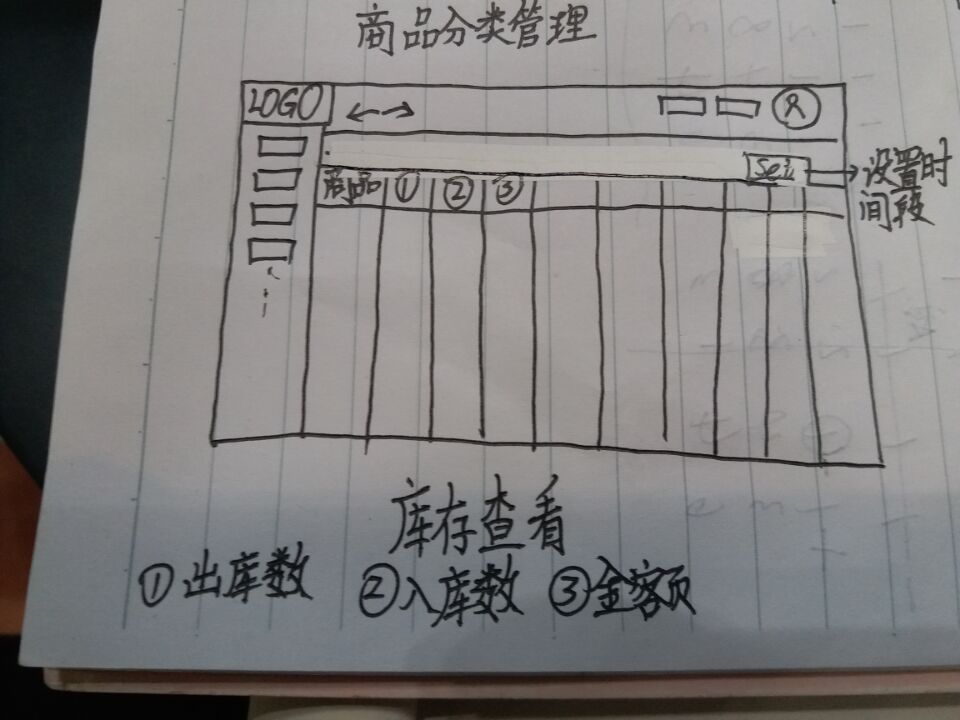 商品分类管理
LOGO
R
Set
设置时
间段
商品 ① ② ③
库存查看
①出库数 ②入库数 ③金额